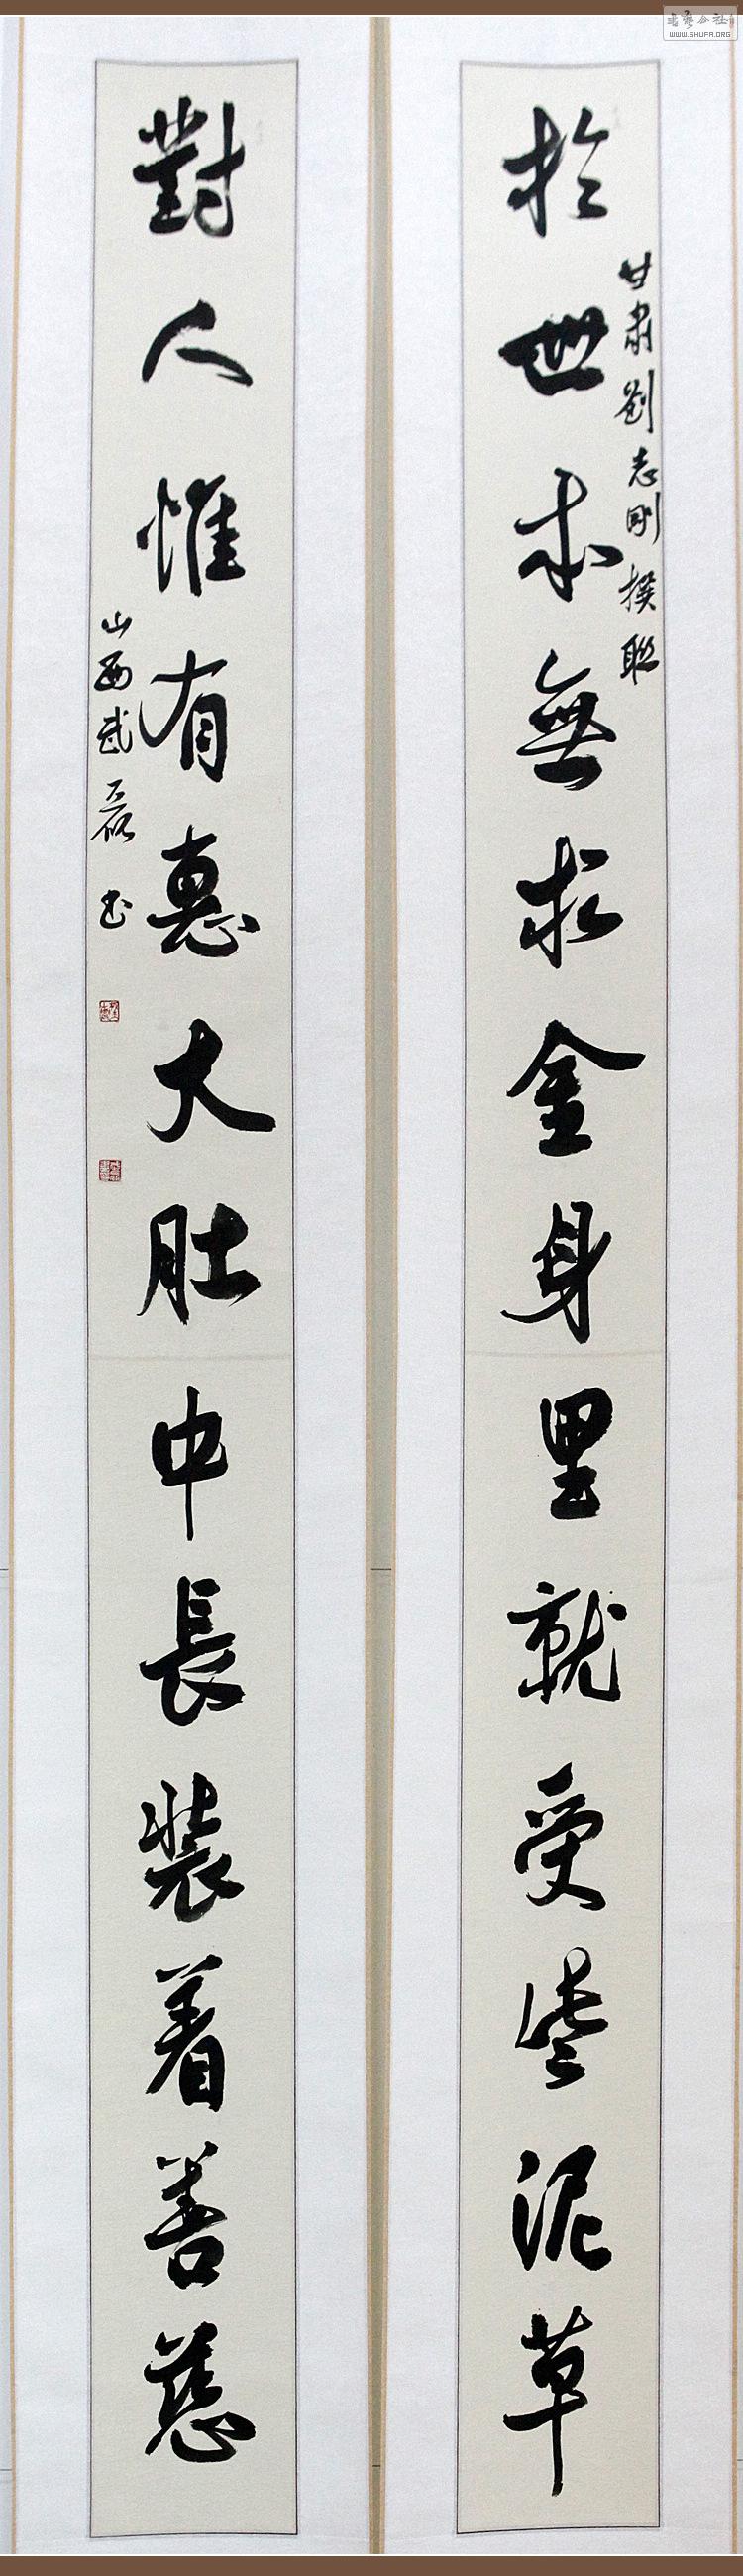 於世本無求金身里就受些泥草
甘肅劉志剛撰聯
對人惟有惠大肚中長裝着善慈
山西武磊書
書藝公社
WWW.SHUFA.ORG